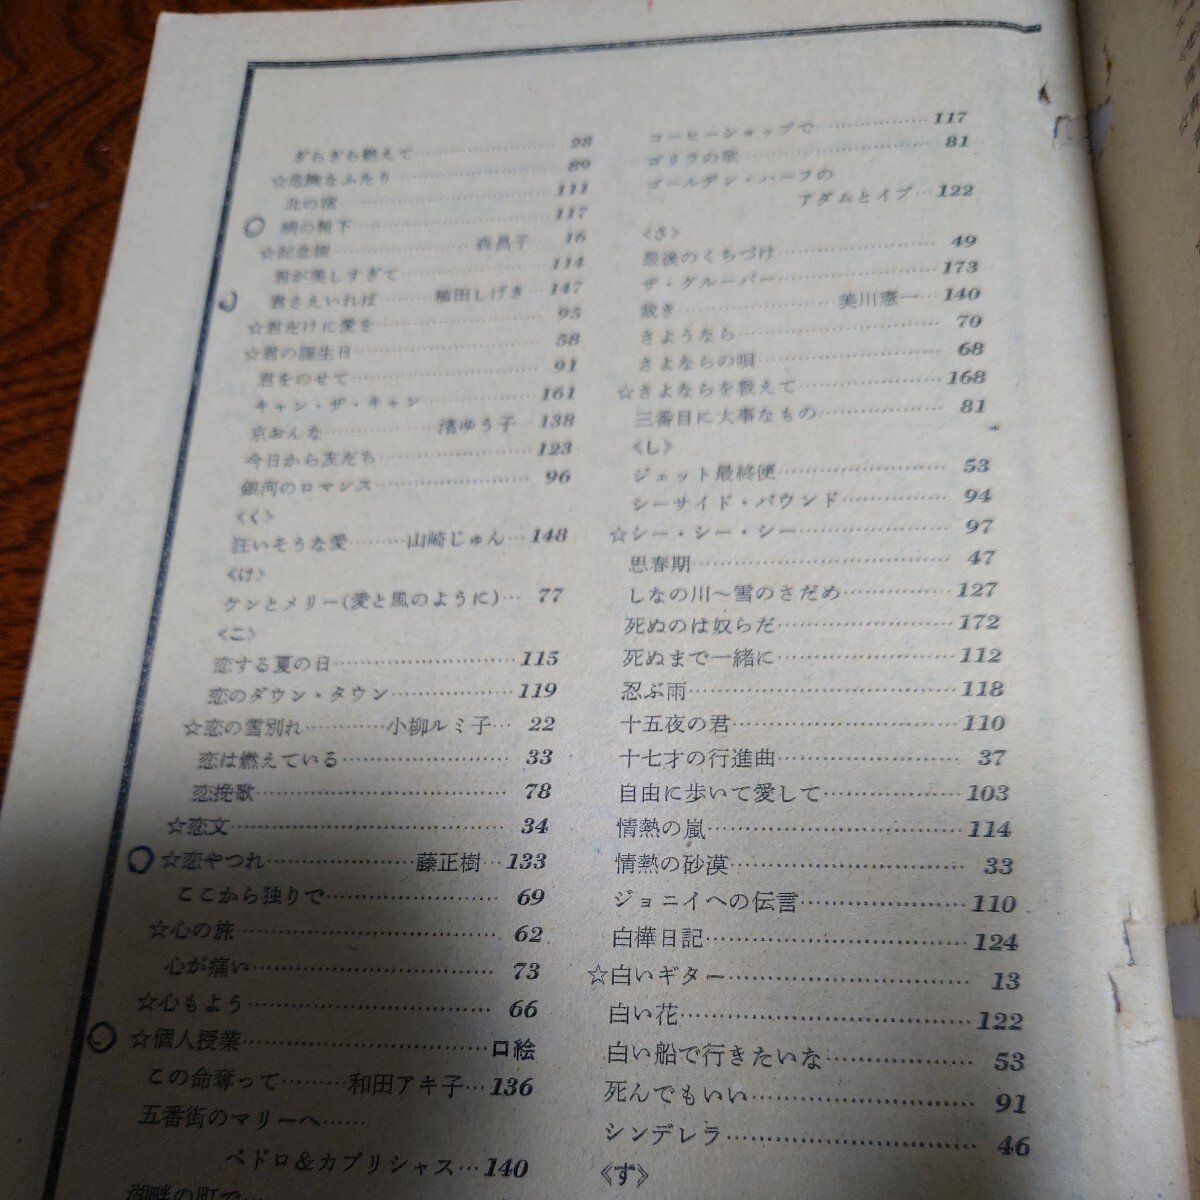 ぎらぎら燃えて……………28
☆危険なふたり……………89
北の宿……………111
鯛の鞄下……………117
☆記念樹……………森昌子 16
君が美しすぎて……………114
君さえいれば………植田しげき…147
☆君だけに愛を……………95
☆君の誕生日……………58
君をのせて……………91
キャン・ザ・キャン……………161
京おんな……………渚ゆう子…138
今日から友だち……………123
銀河のロマンス……………96
〈く〉
狂いそうな愛………山崎じゅん…148
〈け〉
ケンとメリー(愛と風のように)…77
〈こ〉
恋する夏の日……………115
恋のダウン・タウン……………119
☆恋の雪別れ…………小柳ルミ子…22
恋は燃えている……………33
恋挽歌……………78
☆恋文……………34
☆恋やつれ……………藤正樹…133
ここから独りで……………69
☆心の旅……………62
心が痛い……………73
☆心もよう……………66
☆個人授業……………口絵
この命奪って………和田アキ子…136
五番街のマリーへ……
ペドロ&カプリシャス…140
湖畔の町で……
コーヒーショップで……………117
ゴリラの歌……………81
ゴールデン・ハーフの
アダムとイブ…122
〈さ〉
最後のくちづけ……………49
ザ・ゲルーバー……………173
裁き……………美川憲一…140
さようなら……………70
さよならの唄……………68
☆さよならを教えて……………168
三番目に大事なもの……………81
〈し〉
ジェット最終便……………53
シーサイド・バウンド……………94
☆シー・シー・シー……………97
思春期……………47
しなの川～雪のさだめ……………127
死ぬのは奴らだ……………172
死ぬまで一緒に……………112
忍ぶ雨……………118
十五夜の君……………110
十七才の行進曲……………37
自由に歩いて愛して……………103
情熱の嵐……………114
情熱の砂漠……………33
ジョニイへの伝言……………110
白樺日記……………124
☆白いギター……………13
白い花……………122
白い船で行きたいな……………53
死んでもいい……………91
シンデレラ……………46
〈ず〉